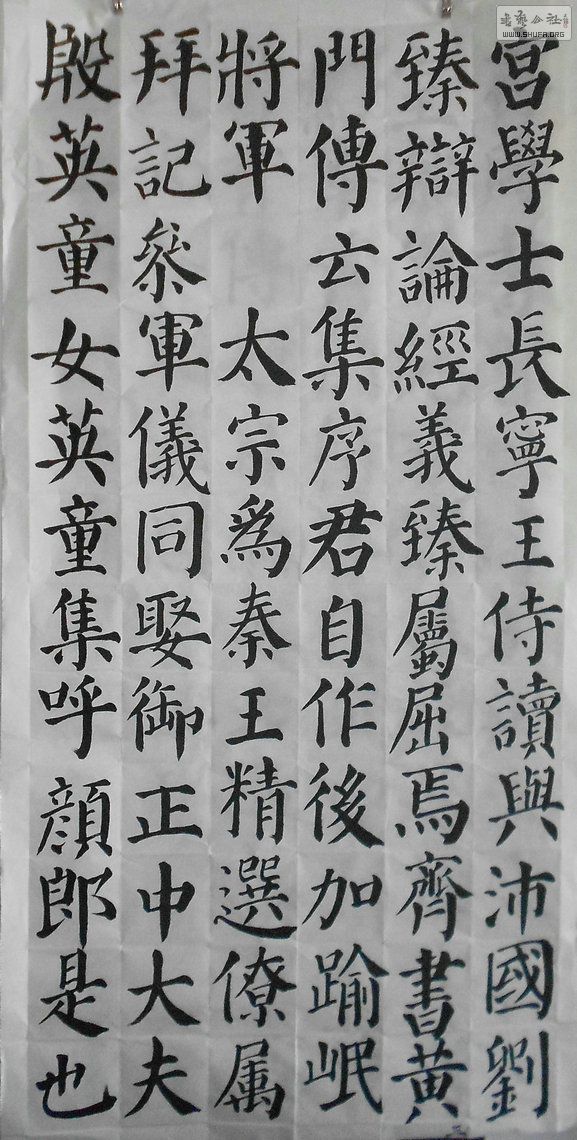 宮學士長寧王侍讀與沛國劉
臻辯論經義臻屬屈焉齊書黃
門傳云集序君自作後加踰岷
將軍 太宗爲秦王精選僚属
拜記參軍儀同娶御正中大夫
殷英童女英童集呼顏郎是也
書藝公社
WWW.SHUFA.ORG